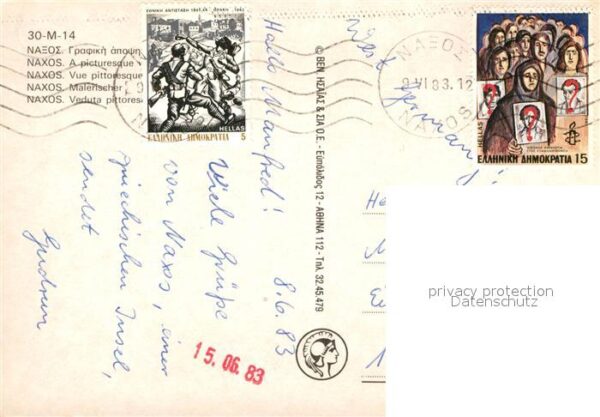 30-M-14
ΝΑΞΟΣ. Γραφική άποψη
NAXOS. A picturesque v
NAXOS. Vue pittoresque
NAXOS. Malerischer
NAXOS. Veduta pittores
ΕΘΝΙΚΗ ΑΝΤΙΣΤΑΣΗ 1941-44
HELLAS
ΕΛΛΗΝΙΚΗ ΔΗΜΟΚΡΑΤΙΑ 5
© ΒΕΝ. ΗΣΑΪΑΣ & ΣΙΑ Ο.Ε. - Ευπόλιδος 12 - ΑΘΗΝΑ 112 - Τηλ. 32.45.479
West Germany
ΝΑΞΟΣ
9 VI 83.12
NAXOS
HELLAS
ΕΛΛΗΝΙΚΗ ΔΗΜΟΚΡΑΤΙΑ 15
8.6.83
Hallo Manfred!
Viele Grüße
von Naxos, einer
griechischen Insel,
sendet
Gudrun
15.06.83
privacy protection
Datenschutz